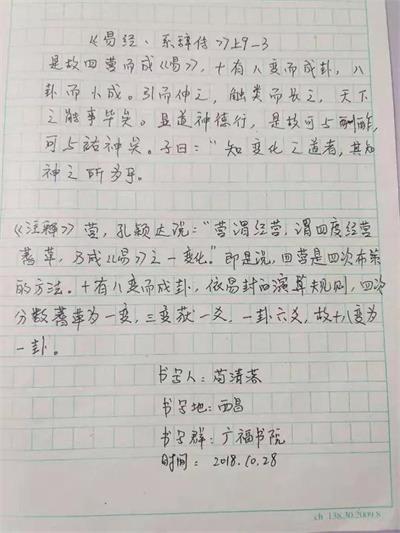 《易经、系辞传》上9-3
是故四营而成《易》，十有八变而成卦，八
卦而小成。引而伸之，触类而长之，天下
之能事毕矣。显道神德行，是故可与酬酢，
可与祐神矣。子曰："知变化之道者，其知
神之所为乎。
《注释》营，孔颖达说："营谓经营，谓四度经营
蓍草，乃成《易》之一变化。"即是说，四营是四次布策
的方法。十有八变而成卦，依易卦的演算规则，四次
分数蓍草为一变，三变获一爻，一卦六爻，故十八变为
一卦。
书写人：苟清蓉
书写地：西昌
书写群：广福书院
时间：2018.10.28
ch 138.30.2009.8